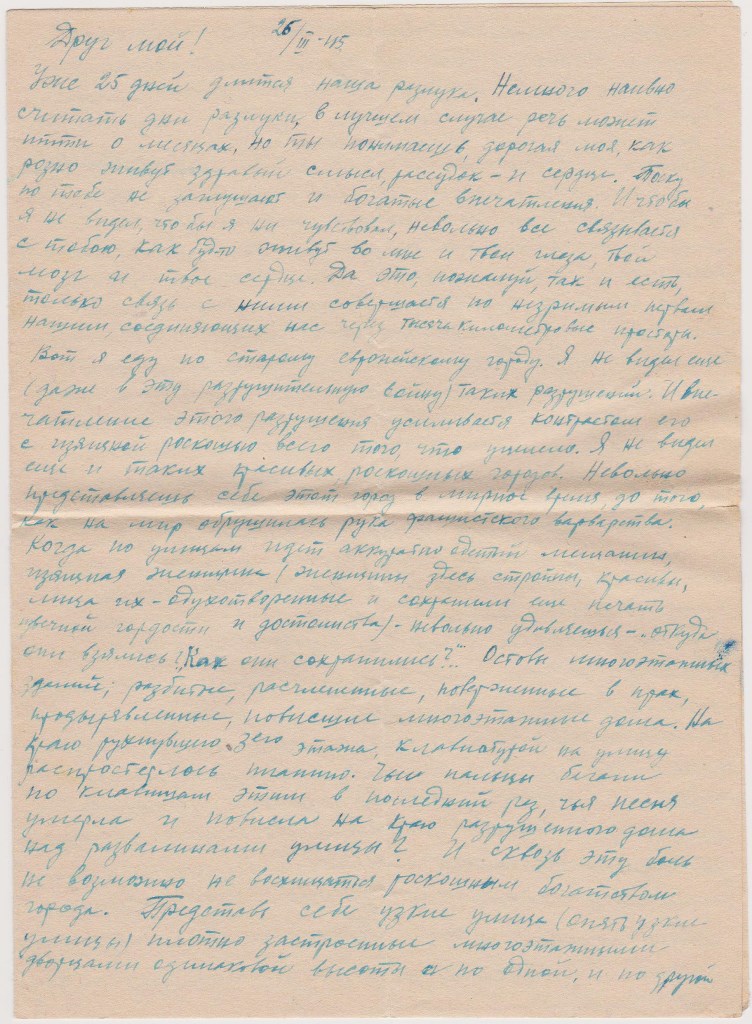 Друг мой! 26/III-45.
Уже 25 дней длится наша разлука. Немного наивно
считать дни разлуки, в лучшем случае речь может
итти о месяцах, но ты понимаешь, дорогая моя, как
розно живут здравый смысл, рассудок - и сердце. Тоску
по тебе не заглушают и богатые впечатления. И что бы
я не видел, что бы я ни чувствовал, невольно все связывается
с тобою, как будто живут во мне и твои глаза, твой
мозг и твое сердце. Да это, пожалуй, так и есть,
только связь с ними совершается по незримым нервам
нашим, соединяющих нас через тысячакилометровые просторы.
Вот я еду по старому европейскому городу. Я не видел еще
(даже в эту разрушительную войну) таких разрушений. И впе-
чатление этого разрушения усиливается контрастом его
с изящной роскошью всего того, что уцелело. Я не видел
еще и таких красивых, роскошных городов. Невольно
представляешь себе этот город в мирное время, до того,
как на мир обрушилась рука фашистского варварства.
Когда по улицам идет аккуратно одетый мещанин,
изящная женщина (женщины здесь стройны, красивы,
лица их - одухотворенные и сохранили еще печать
вечной гордости и достоинства) - невольно удивляешься - откуда
они взялись? "Как они сохранились?"... Остовы многоэтажных
зданий; разбитые, расчлененные, поверженные в прах,
продырявленные, повисшие многоэтажные дома. На
краю рухнувшего 3его этажа, клавиатурой на улицу
распростерлось пианино. Чьи пальцы бегали
по клавишам этим в последний раз, чья песня
умерла и повисла на краю разрушенного дома
над развалинами улицы? И сквозь эту боль
не возможно не восхищаться роскошным богатством
города. Представь себе узкие улицы (опять узкие
улицы) плотно застроенные многоэтажными
дворцами одинаковой высоты и по одной, и по другой